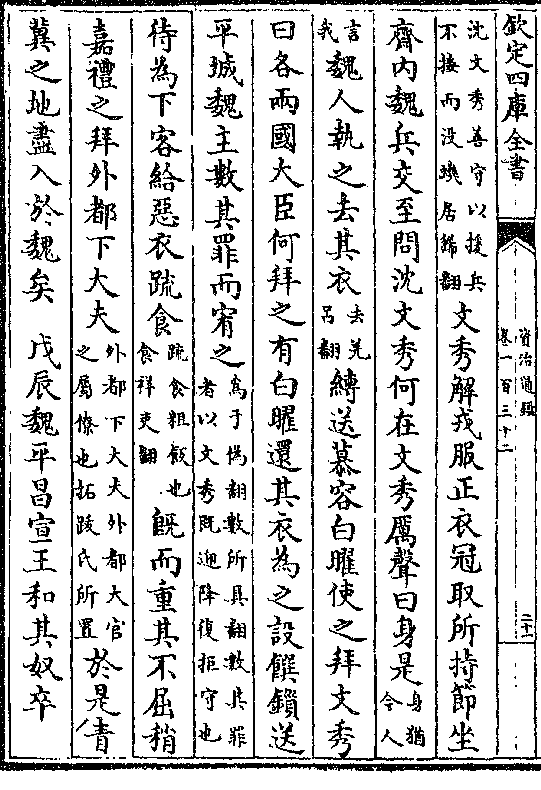 欽定四庫全書
資治通鑑
卷一百三十二
二十
沈文秀善守以援兵
不接而没㡬居豨翻
文秀解戎服正衣冠取所持節坐
齋内魏兵交至問沈文秀何在文秀厲聲曰身是
身猶
今人
言
我
魏人執之去其衣
去羌
吕翻
縛送慕容白曜使之拜文秀
曰各兩國大臣何拜之有白曜還其衣為之設饌鎖送
平城魏主數其罪而宥之
為于偽翻數所具翻數其罪
者以文秀既迎降復拒守也
待為下客給惡衣疏食
疏食粗飯也
食祥吏翻
旣而重其不屈稍
嘉禮之拜外都下大夫
外都下大夫外都大官
之屬僚也拓跋氏所置
於是青
冀之地盡入於魏矣
戊辰魏平昌宣王和其奴卒